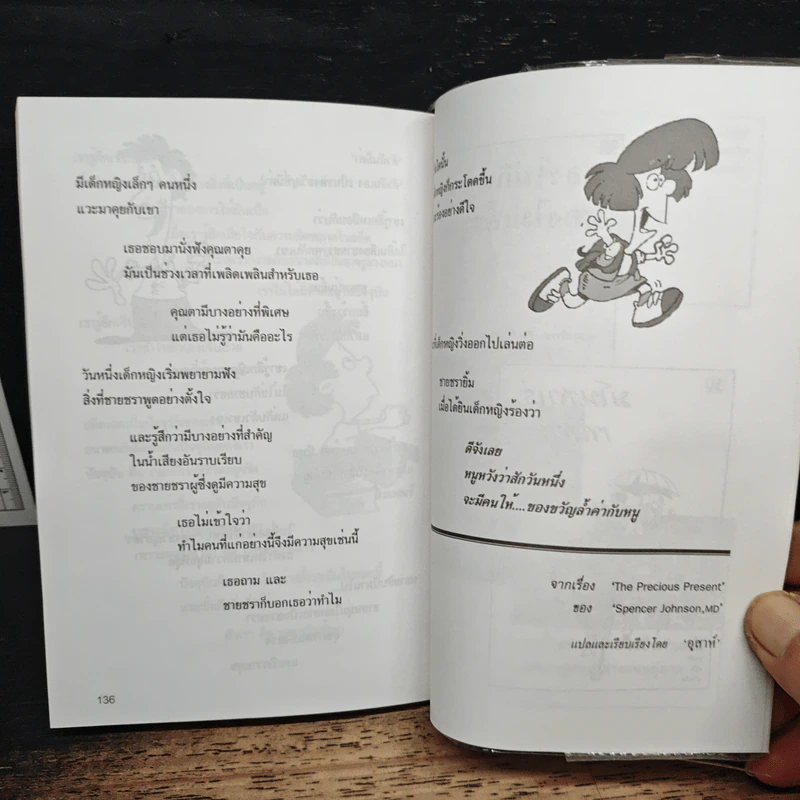 มีเด็กหญิงเล็กๆ คนหนึ่ง
แวะมาคุยกับเขา
เธอชอบมานั่งฟังคุณตาคุย
มันเป็นช่วงเวลาที่เพลิดเพลินสำหรับเธอ
คุณตามีบางอย่างที่พิเศษ
แต่เธอไม่รู้ว่ามันคืออะไร
วันหนึ่งเด็กหญิงเริ่มพยายามฟัง
สิ่งที่ชายชราพูดอย่างตั้งใจ
และรู้สึกว่ามีบางอย่างที่สำคัญ
ในน้ำเสียงอันราบเรียบ
ของชายชราผู้ซึ่งดูมีความสุข
เธอไม่เข้าใจว่า
ทำไมคนที่แก่อย่างนี้จึงมีความสุขเช่นนี้
เธอถาม และ
ชายชราก็บอกเธอว่าทำไม
136
ใดนั้น
หญิงก็กระโดดขึ้น
ร้องอย่างดีใจ
เด็กหญิงวิ่งออกไปเล่นต่อ
ชายชรายิ้ม
เมื่อได้ยินเด็กหญิงร้องว่า
ดีจังเลย
หนูหวังว่าสักวันหนึ่ง
จะมีคนให้....ของขวัญล้ำค่ากับหนู
จากเรื่อง 'The Precious Present'
ของ 'Spencer Johnson,MD'
แปลและเรียบเรียงโดย 'อุสาห์'